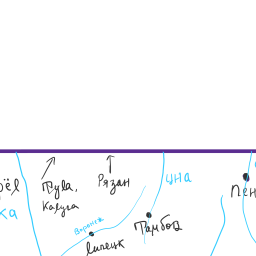 Тула,
Калуга
Рязан
Цна
Воронеж
Липецк
Тамбов